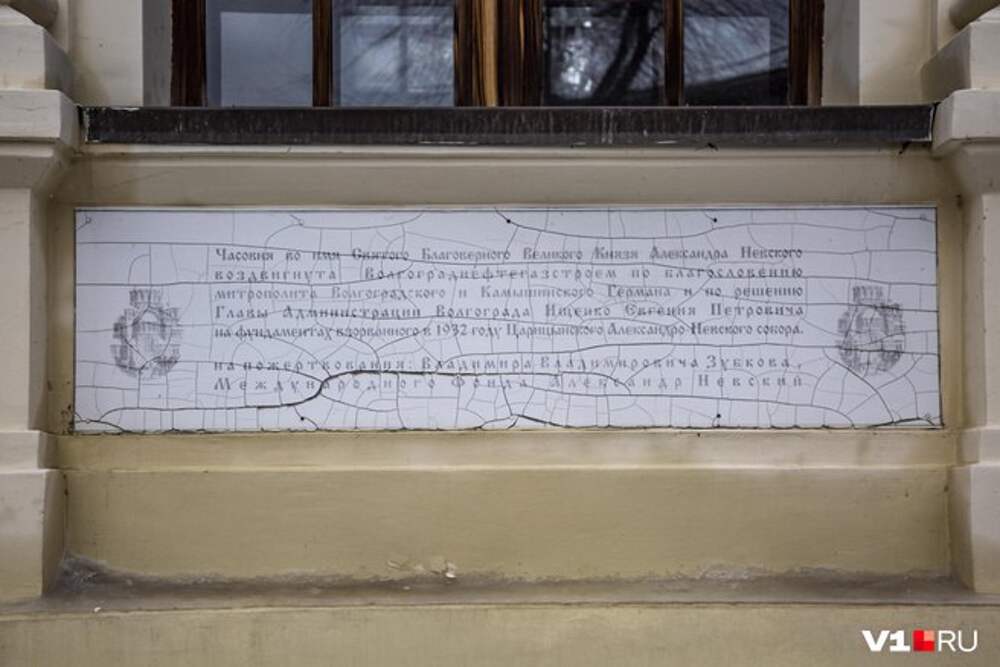 Часовня во имя Святого Благоверного Великого Князя Александра Невского
воздвигнута Волгограднефтегазстроем по благословению
митрополита Волгоградского и Камышинского Германа и по решению
Главы Администрации Волгограда Ищенко Евгения Петровича
на фундаментах взорванного в 1932 году Царицынского Александро-Невского собора.
на пожертвования: Владимира Владимировича Зубкова,
Международного Фонда Александр Невский
V1.RU